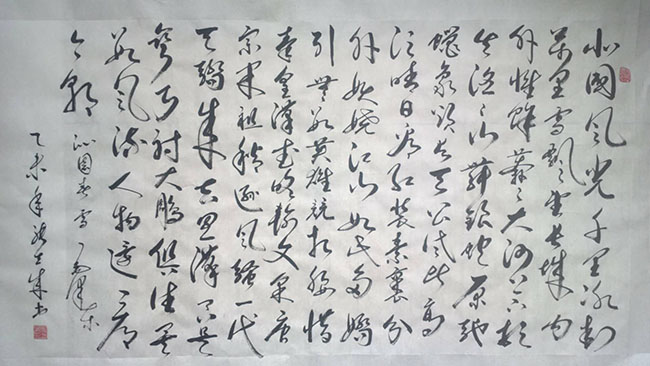 北國风光千里冰封
萬里雪飘望长城内
外惟馀莽莽大河上下顿
失滔滔山舞银蛇原驰
蠟象欲与天公试比高
须晴日看红装素裹分
外妖娆江山如此多娇
引無数英雄竞折腰惜
秦皇漢武略输文采唐
宗宋祖稍逊风骚一代
天骄成吉思漢只识
弯弓射大鵰俱往矣
数风流人物还看
今朝
沁園春雪 毛泽东
乙未年